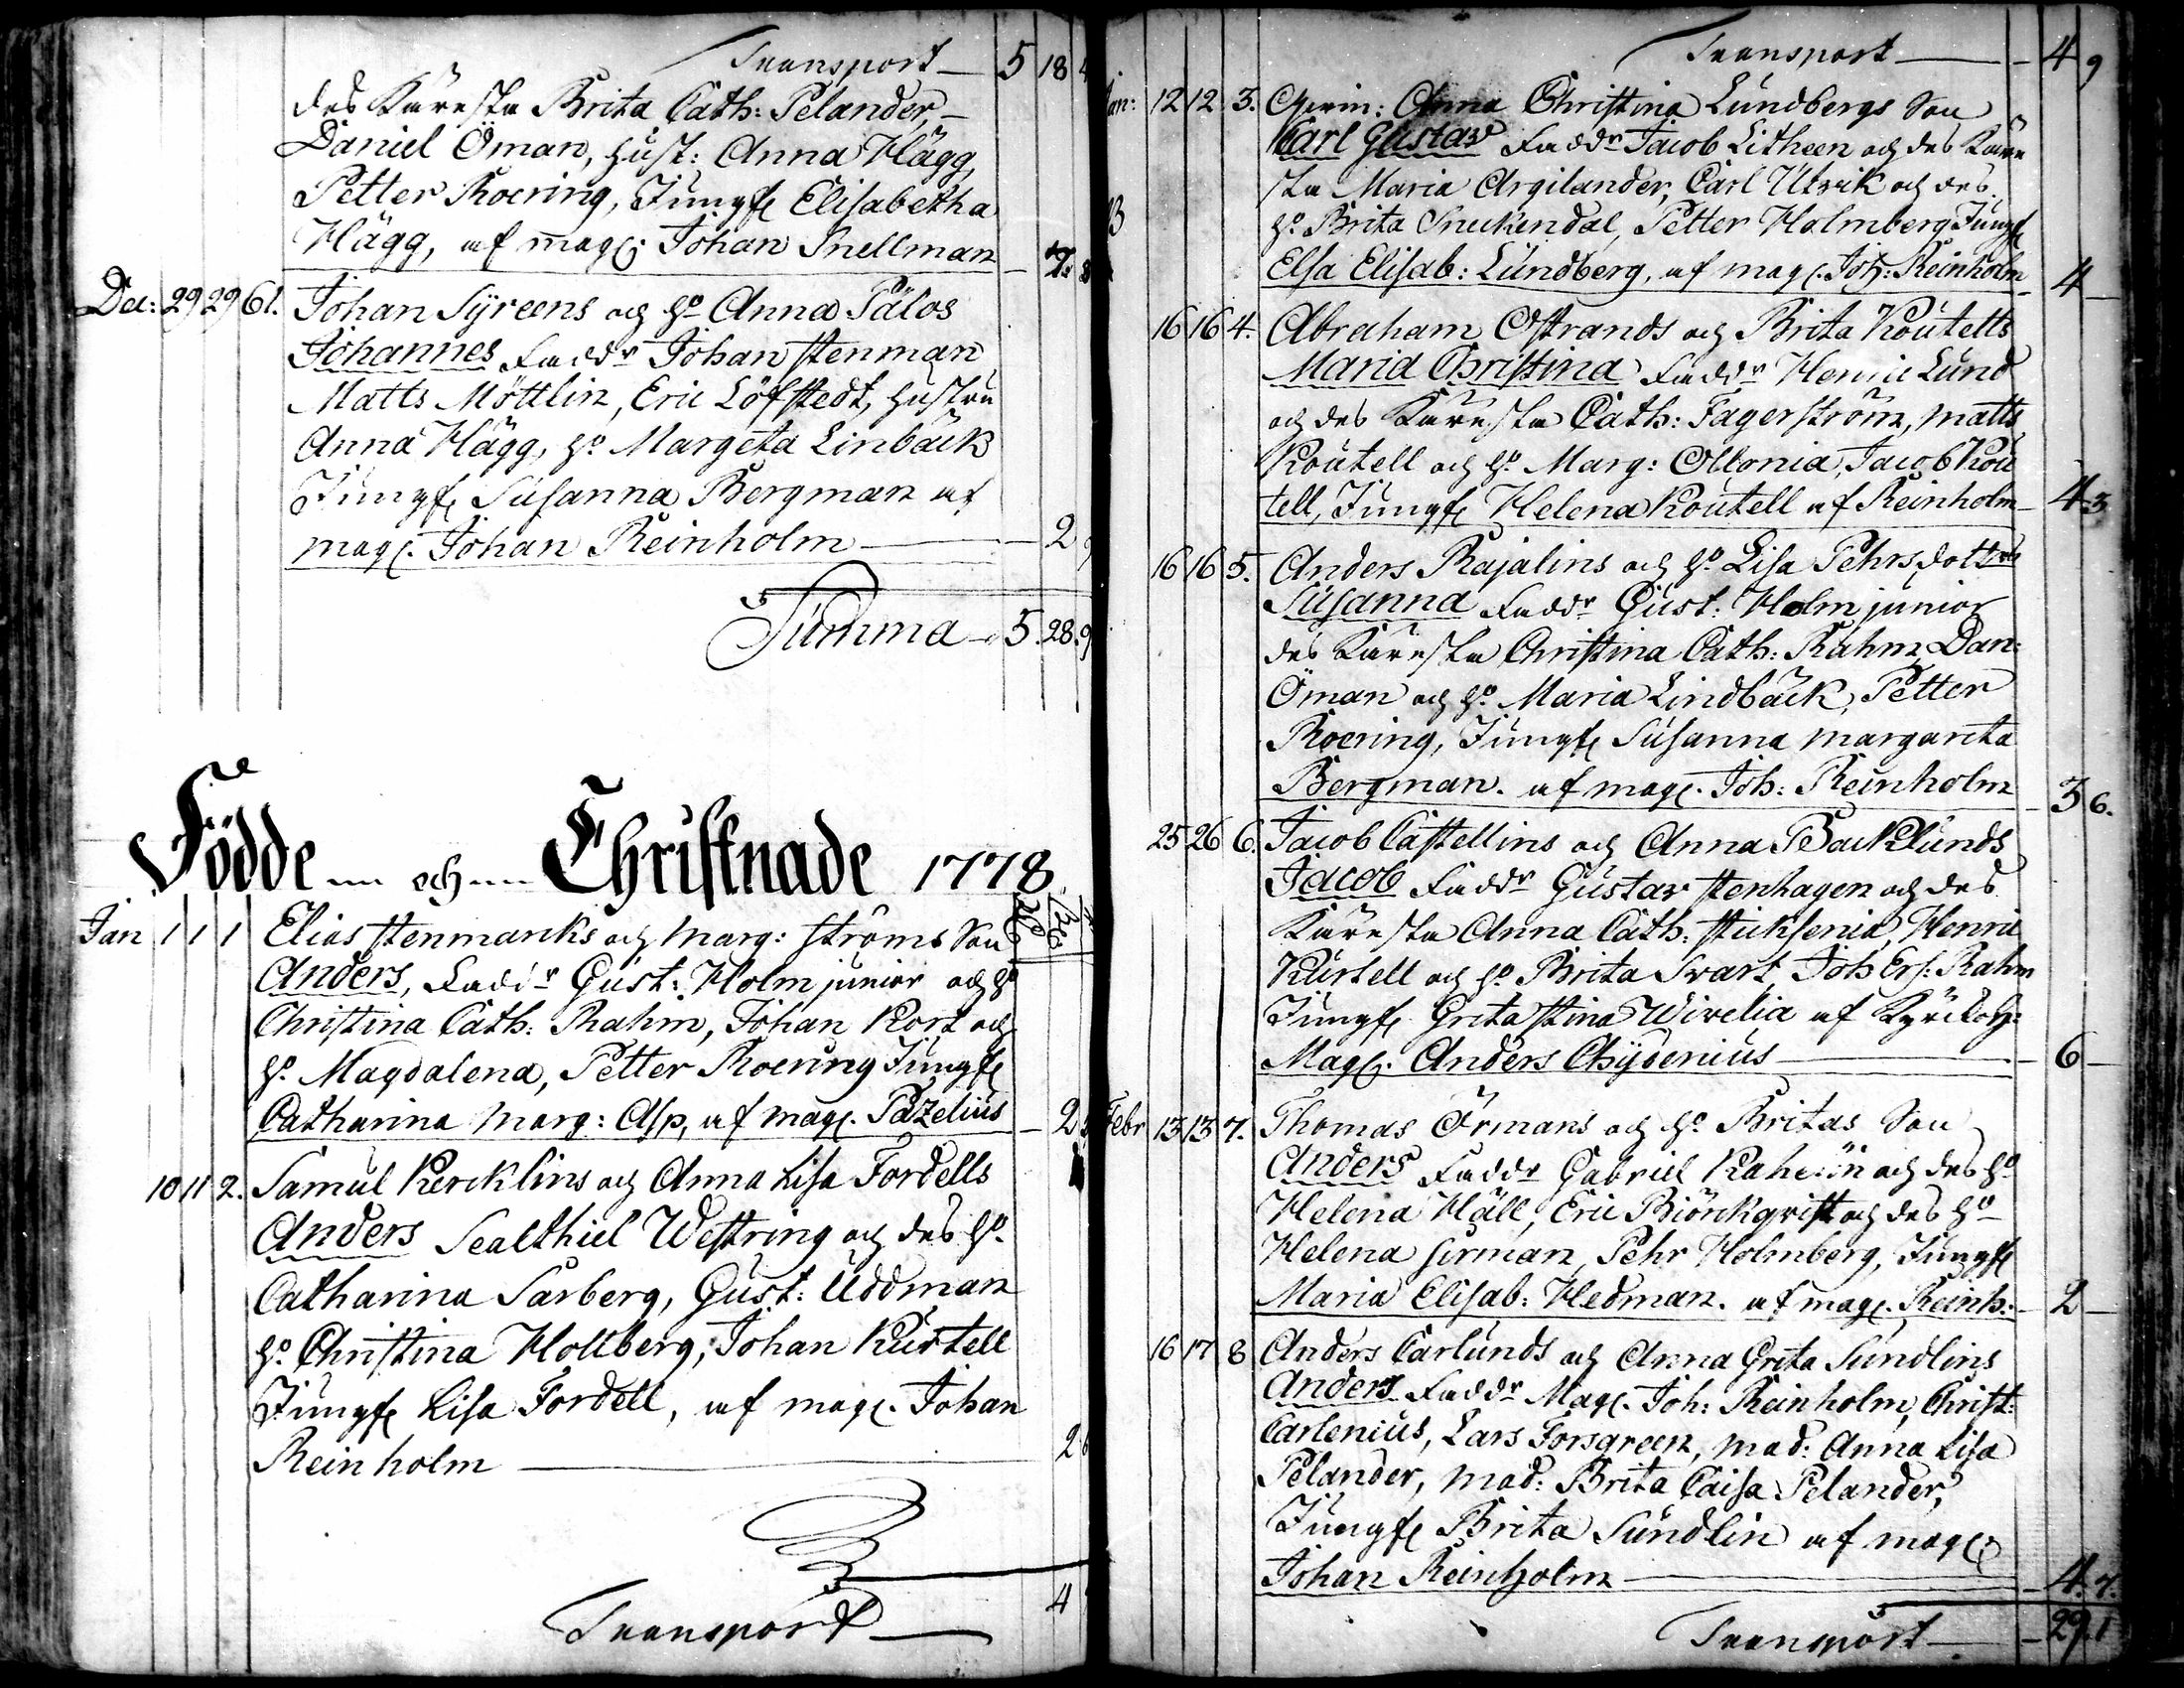 Transport — 5 18
des Käresta Brita Cath: Pelander,
Daniel Öman, hust: Anna Hägg,
Petter Roering, Jungf Elisabetha
Hägg, af mag: Johan Snellman — 7: 8
Dec: 29 29 61. Johan Syreens och ho Anna Pälos
Johannes Faddr Johan Stenman
Matts Möttlin, Eric Löfstedt, hustru
Anna Hägg, ho Margeta Linbäck
Jungf Susanna Bergman af
mag. Johan Reinholm — 2
Summa — 5. 28. 9
Födde och Christnade 1778
Jan 1 1 1 Elias Stenmarks och Marg: Ströms Son
Anders, Faddr Gust: Holm junior och ho
Christina Cath: Rahm, Johan Kort och
ho Magdalena, Petter Roering Jungf
Catharina Marg: Asp, af mag. Pazelius — 2
10 11 2. Samul Kercklins och Anna Lisa Fordells
Anders Sealthiel Westring och des ho
Catharina Sarberg, Gust: Uddman
ho Christina Hollberg, Johan Kurtell
Jungf Lisa Fordell, af mag. Johan
Reinholm — 2 6
Transport — 4
Transport — 4 9
Jan: 12 12 3. Qvin: Anna Christina Lundbergs Son
Carl Gustav Faddr Jacob Litheen och des Käre
sta Maria Argilander, Carl Ulrik och des
ho Brita Sneckendal, Petter Holmberg Jungf
Elsa Elisab: Lundberg, af mag. Joh: Reinholm — 4 —
16 16 4. Abraham Ostrands och Brita Koutells
Maria Christina Faddr Henric Lund
och des Käresta Cath: Fagerström, Matts
Koutell och ho Marg: Ollonia, Jacob Kou
tell, Jungf Helena Koutell af Reinholm — 4 3
16 16 5. Anders Rajalins och ho Lisa Pehrsdotters
Susanna Faddr Gust: Holm junior
des Käresta Christina Cath: Rahm, Dan:
Öman och ho Maria Lindbäck, Petter
Roering, Jungf Susanna Margareta
Bergman. af mag. Joh: Reinholm — 3 6.
25 26 6. Jacob Castellins och Anna Backlunds
Jacob Faddr Gustav Stenhagen och des
Käresta Anna Cath: Stichsenia, Henric
Kurtell och ho Brita Svart, Joh Ers: Rahm
Jungf Greta Stina Wivelia af Kyrckoh:
Mag. Anders Chydenius — 6 —
Febr 13 13 7. Thomas Örmans och ho Britas Son
Anders Faddr Gabriel och des ho
Helena Häll, Eric Biörckqvist och des ho
Helena Sirman, Pehr Holmberg, Jungf
Maria Elisab: Hedman. af mag. Reinh: — 2 —
16 17 8 Anders Carlunds och Anna Greta Sundlins
Anders Faddr Mag. Joh: Reinholm, Christ:
Carlenius, Lars Forsgreen, Mad: Anna Lisa
Pelander, Mad: Brita Caisa Pelander,
Jungf Brita Sundlin af mag
Johan Reinholm — 4. 7.
Transport — 29 1